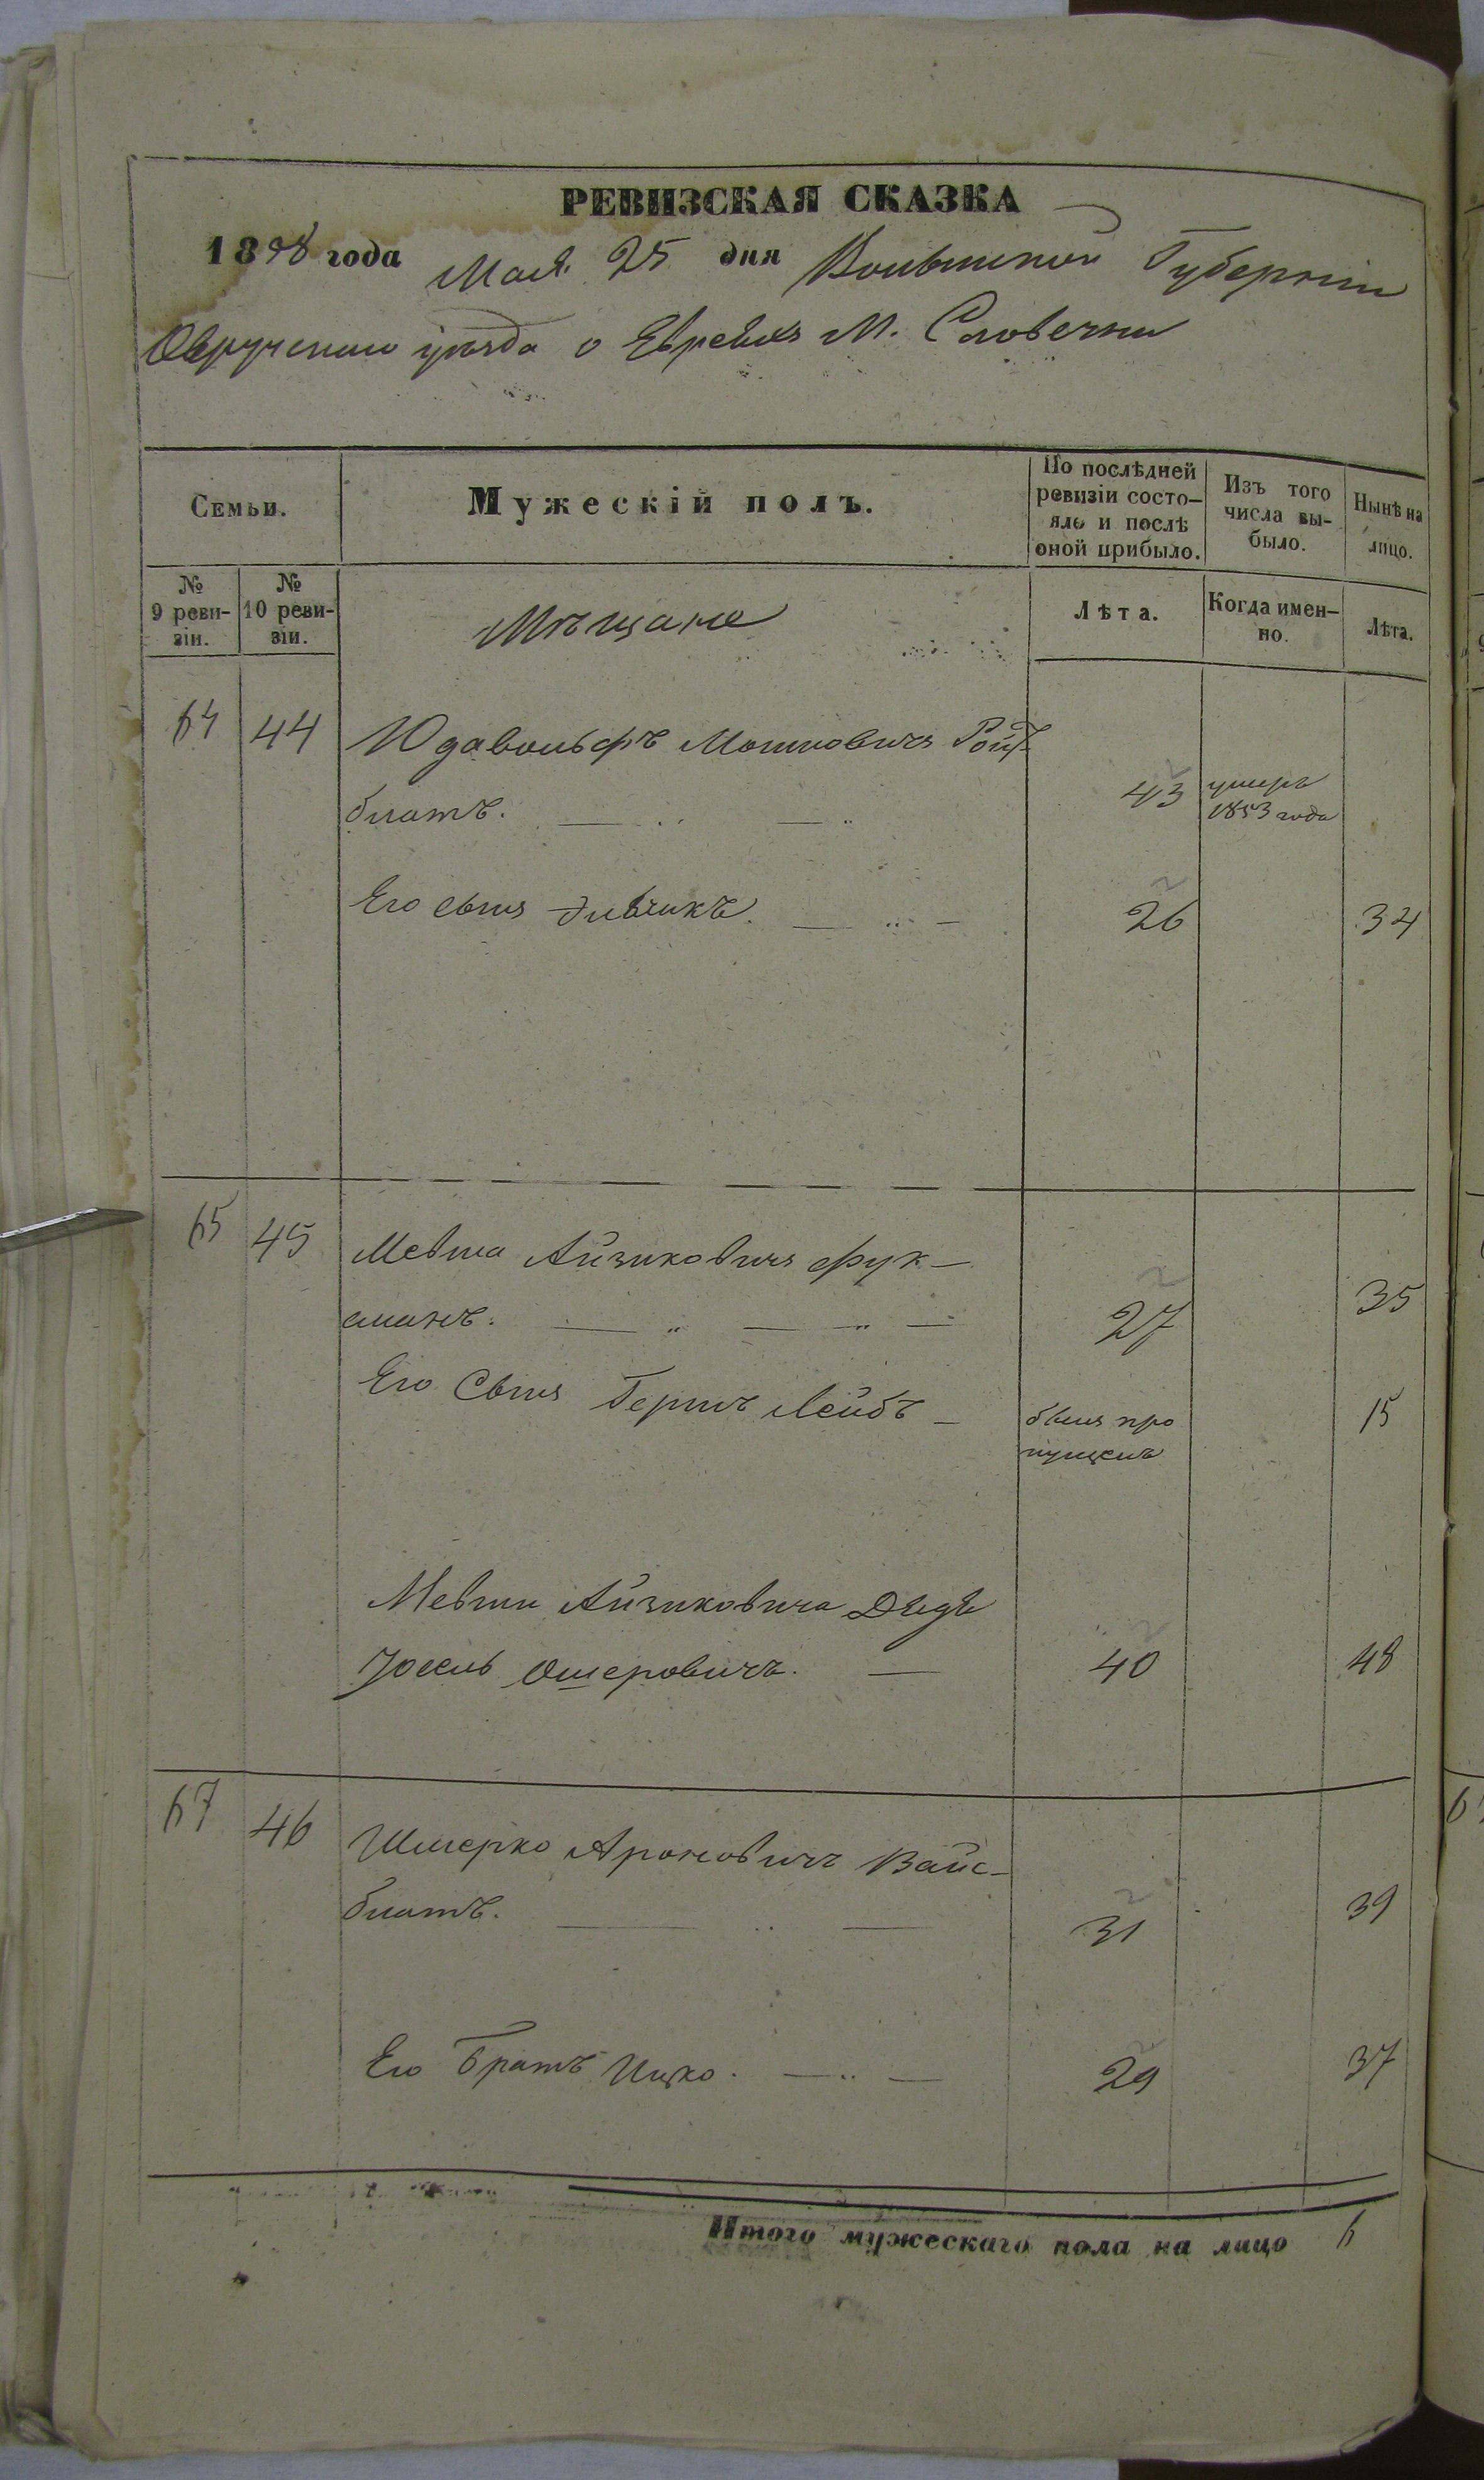 РЕВИЗСКАЯ СКАЗКА
1858 года Мая 25 дня Волынской Губерніи
Овручскаго уѣзда о Евреяхъ М. Словечни
Семьи.
Мужескій полъ.
По послѣдней
ревизіи состо-
яло и послѣ
оной прибыло.
Изъ того
числа вы-
было.
Нынѣ на
лицо.
№
9 реви-
зіи.
№
10 реви-
зіи.
Мѣщане
Лѣта.
Когда имен-
но.
Лѣта.
64 44 Юдавольфъ Мошковичъ Ройт
блатъ. 43 умеръ
1853 года
Его сынъ 26 34
65 45 Мевша Айзиковичъ Фук-
сманъ. 27 35
Его Сынъ Гершъ Лейбъ - былъ про 15
пущенъ
Мевши Айзиковича Дядя
Іосель Ошеровичъ. 40 48
67 46 Шмерко Ароновичъ Вайс-
блатъ. 31 39
Его Братъ Ицко. 29 37
Итого мужескаго пола на лицо 6